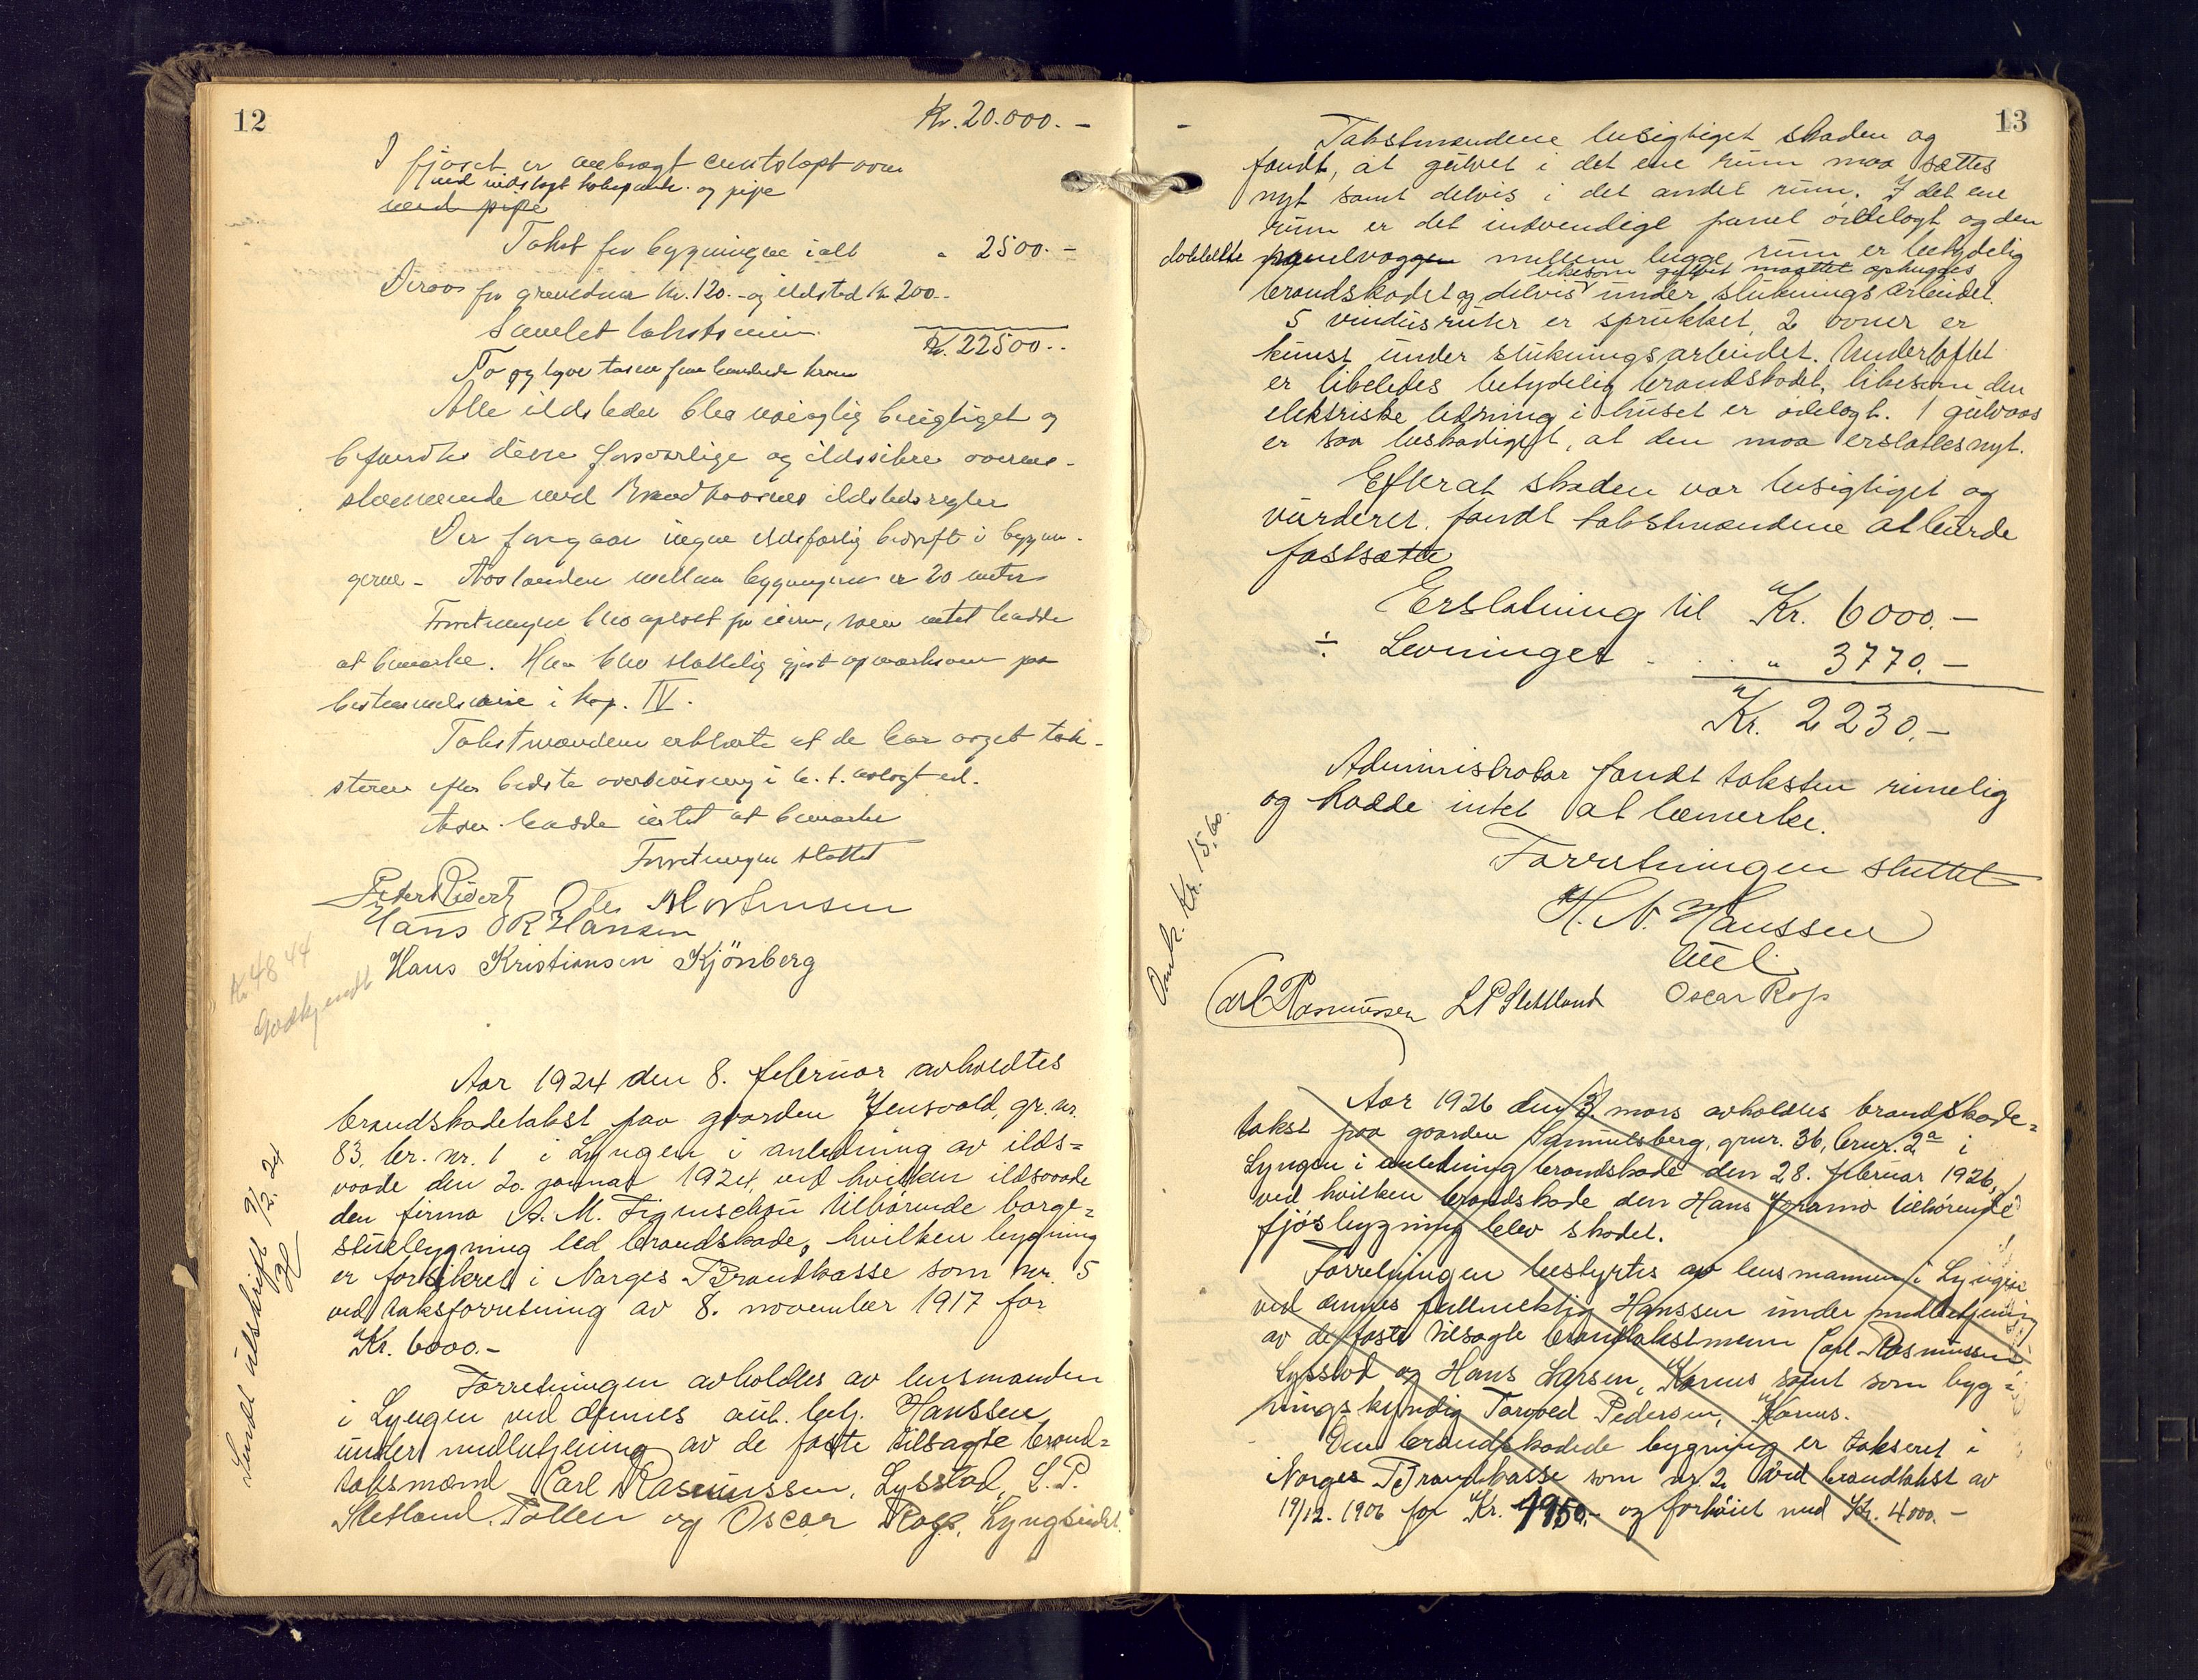 12
Kr. 20.000.-
I fjøset er anbragt ovn
med kokepande og pipe
med pipe
Takst for bygningen ialt " 2500.-
Derav for grundmur kr. 120.- og ildsted kr 200.-
Samlet takstsum Kr. 22500.-
To og tyve tusen fem hundrede kroner
Alle ildsteder blev nøiagtig besigtiget og
befandtes disse forsvarlige og ildsikre overens-
stemmende med Brandkassens ildstedsregler
Der foregaar ingen ildsfarlig bedrift i bygnin-
gerne - Avstanden mellem bygningene er 20 meter
Forretningen blev oplæst for eieren, som intet hadde
at bemerke. Han blev sluttelig gjort opmerksom paa
bestemmelserne i kap. IV.
Takstmændene erklærte at de har avgit tak-
sterne efter bedste overbevisning i h. t. avlagt ed.
hadde intet at bemerke
Forretningen sluttet
Ole Mortensen
Hans O R Hansen
Hans Kristiansen Kjönberg
Kr 48 44
Godkjendt
Aar 1924 den 8. februar avholdtes
brandskadetakst paa gaarden Jensvold, gr. nr.
83, br. nr. 1 i Lyngen i anledning av ilds=
vaade den 20. januar 1924, ved hvilken ildsvaade
den firma A. M. Figenschou tilhørende borge=
stuebygning led brandskade, hvilken bygning
er forsikret i Norges Brandkasse som nr. 5
ved taksforretning av 8. november 1917 for
Kr. 6000.-
Forretningen avholdtes av lensmanden
i Lyngen ved dennes aut. betj. Hanssen
under medbetjening av de faste tilsagte brand=
taksmænd Carl Rasmussen, Lysstad, L. P.
Sletland, Pollen og Oscar Rop, Lyngseidet.
Sendt utskrift 9/2. 24
13
Takstmændene besigtiget skaden og
fandt, at gulvet i det ene rum maa sættes
nyt samt delvis i det andet rum. I det ene
rum er det indvendige panel ødelagt og den
dobbelte panelvæggen mellem begge rum er betydelig
likesom gulvet maatte ophugges
brandskadet og delvis under slukningsarbeidet.
5 vindusruter er sprukket, 2 ovner er
knust under slukningsarbeidet. Underloftet
er likeledes betydelig brandskadet, likesom den
elektriske ledning i huset er ødelagt. 1 gulvaas
er saa beskadiget, at den maa erstattes nyt.
Efterat skaden var besigtiget og
vurderet, fandt takstmændene at burde
fastsætte
Erstatning til Kr. 6000.-
÷ Levninger . . . " 3770.-
Kr. 2230.-
Administrator fandt taksten rimelig
og hadde intet at bemerke.
Forretningen sluttet
H. N. Hanssen
Omk. Kr. 15.60.
Carl Rasmussen L P Sletland Oscar Rop
Aar 1926 den 3 mars avholdtes brandskade=
takst paa gaarden Samuelsberg, gnr. 36, bnr. 2a i
Lyngen i anledning brandskade den 28. februar 1926,
ved hvilken brandskade den Hans Joramo tilhørende
fjøsbygning blev skadet.
Forretningen bestyrtes av lensmannen i Lyngen
ved dennes fullmektig Hanssen under medbetjening
av de faste tilsagte brandtakstmenn Carl Rasmussen
Lysstad og Hans Larsen, Karnes samt som byg=
ningskyndig Torvald Pedersen, Karnes.
Den brandskadede bygning er takseret i
Norges Brandkasse som nr. 2 ved brandtakst av
19/12. 1906 for Kr. 1950.- og forhøiet med Kr. 4000.-